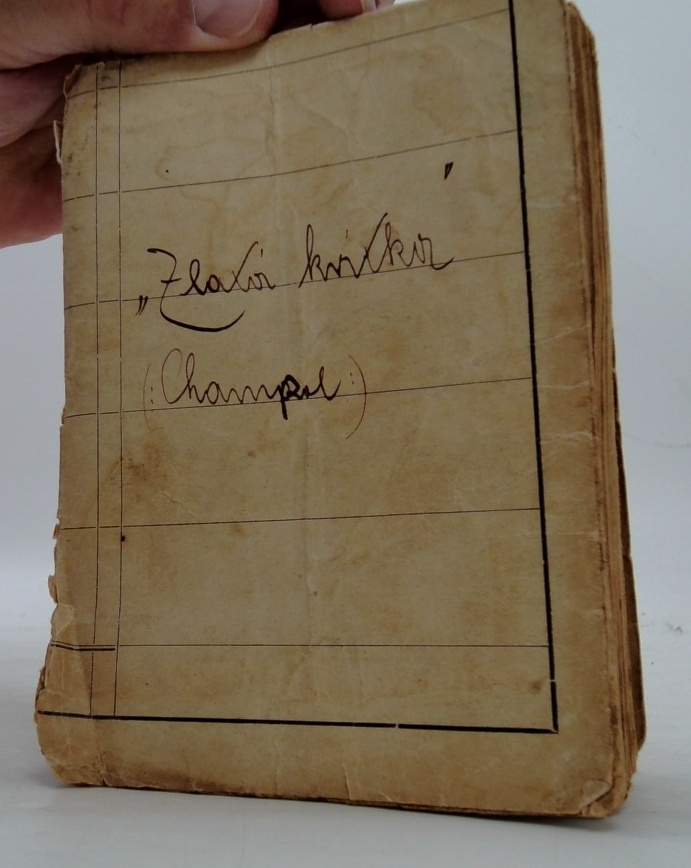 „Zlatá kvítka"
(: Champol :)